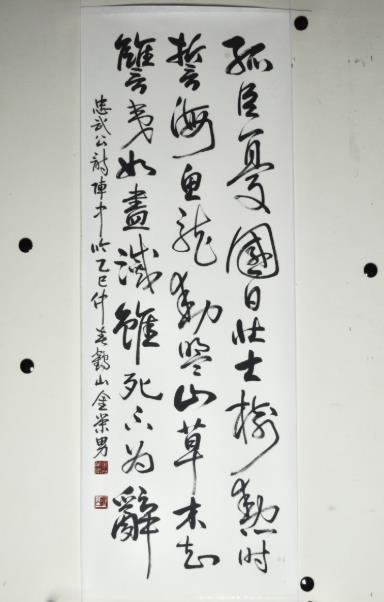 孤臣憂國日壯士樹勲時
誓海魚龍動盟山草木知
讐夷如盡滅雖死不為辭
忠武公詩陣中吟乙巳仲春鶴山金榮男